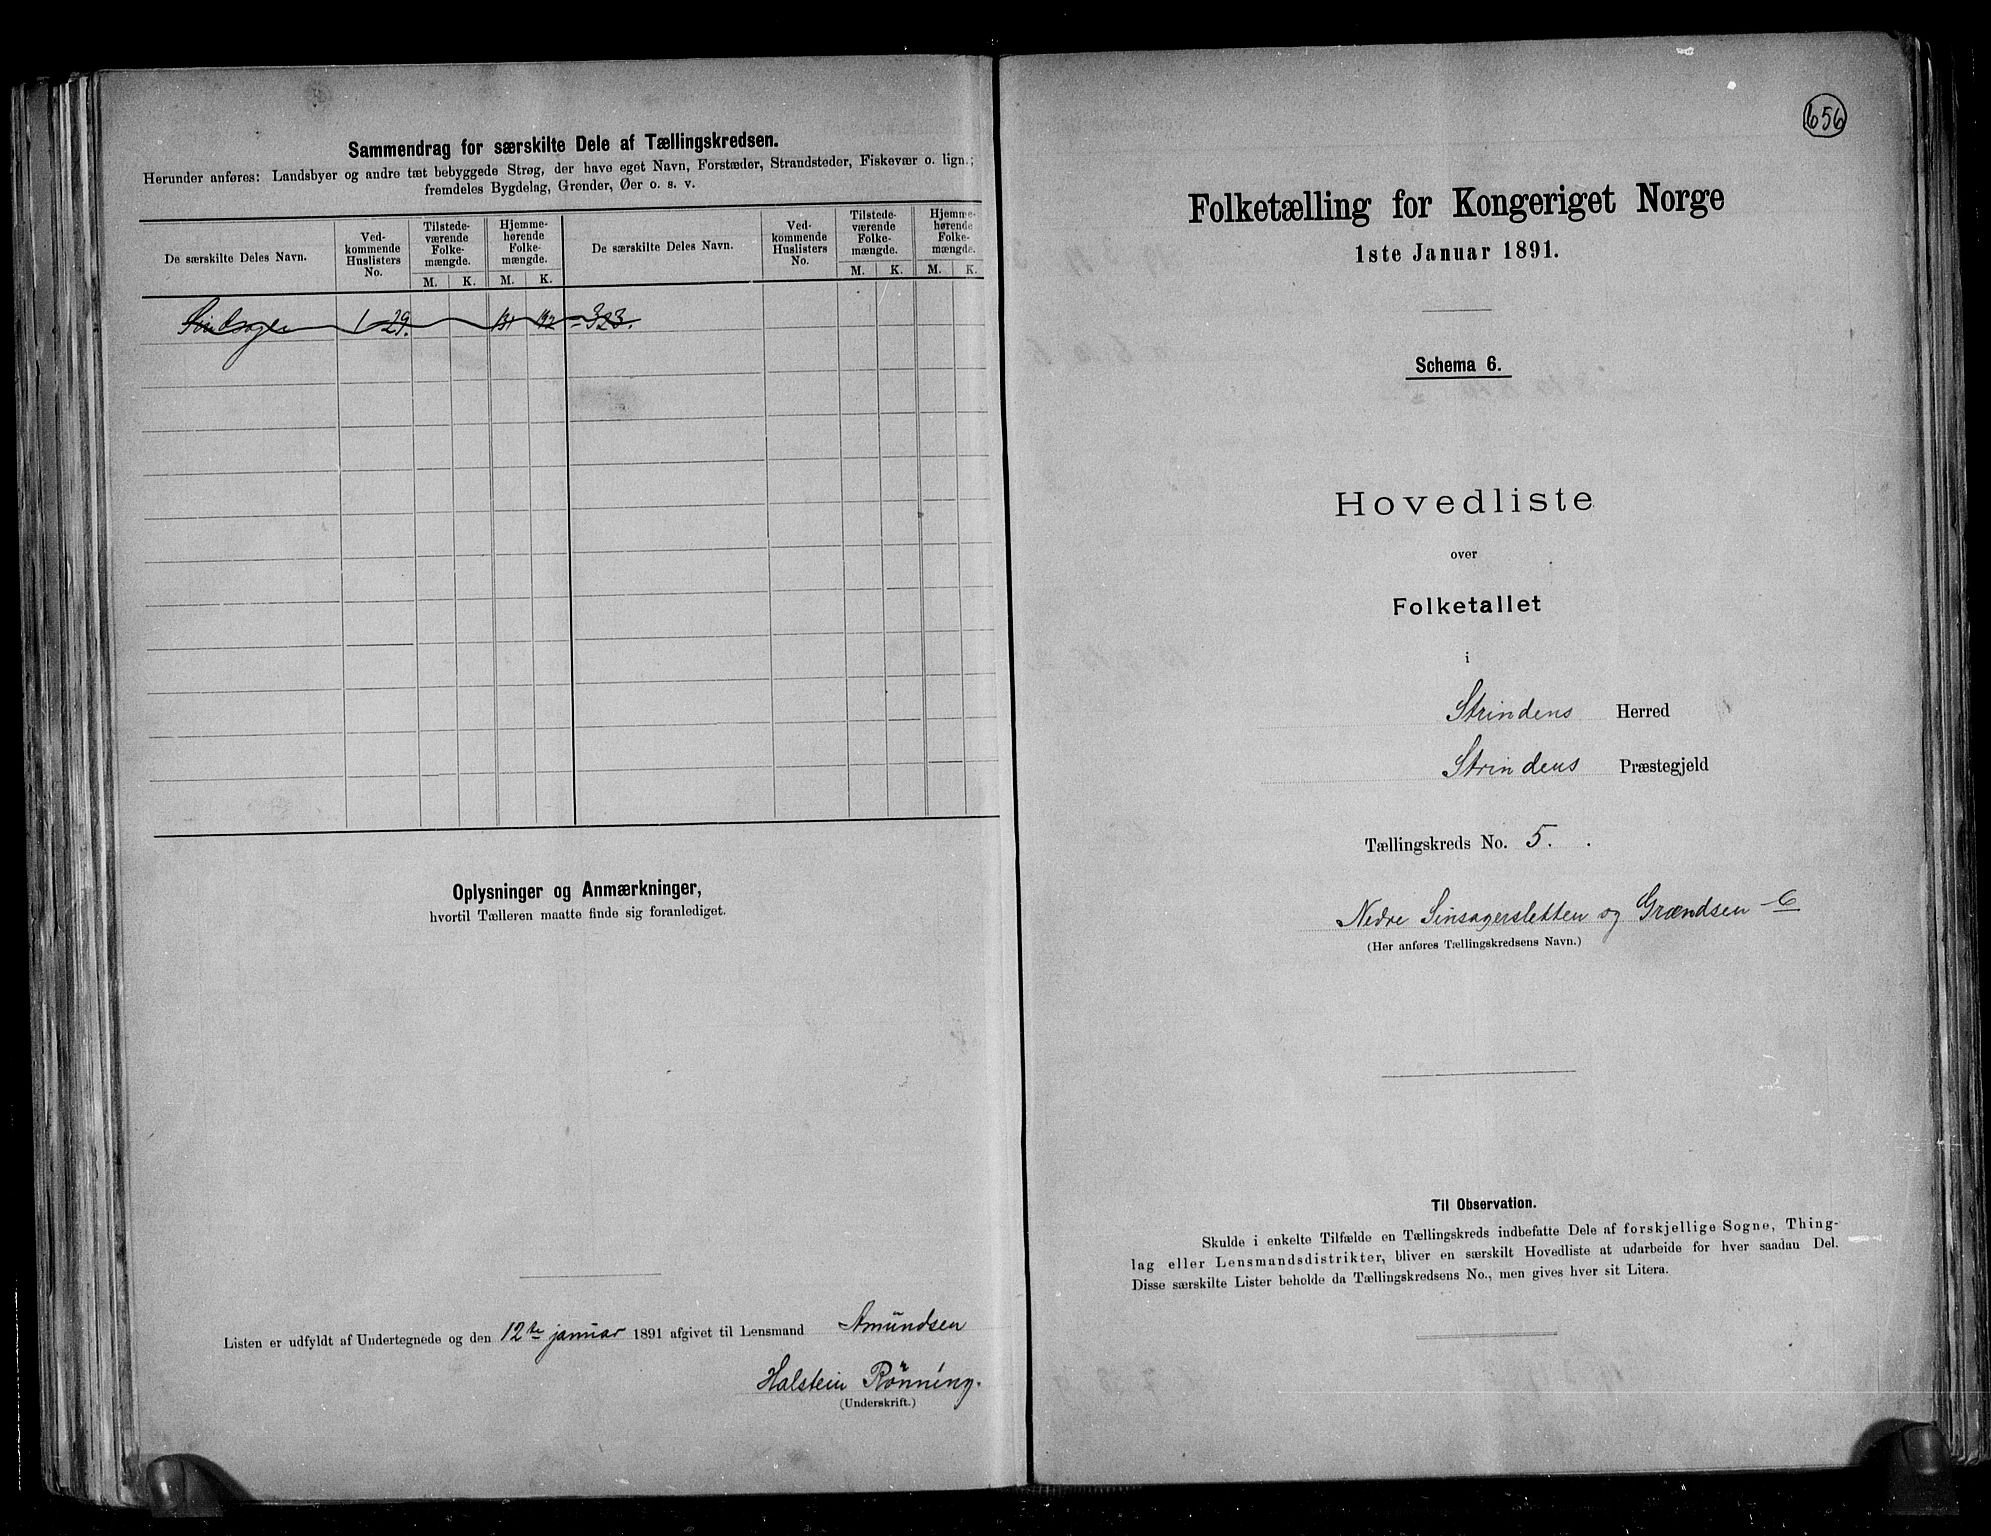 Sammendrag for særskilte Dele af Tællingskredsen.
Herunder anføres: Landsbyer og andre tæt bebyggede Strøg, der have eget Navn, Forstæder, Strandsteder, Fiskevær o. lign.;
fremdeles Bygdelag, Grender, Øer o. s. v.
De særskilte Deles Navn.
Ved-
kommende
Huslisters
No.
Tilstede-
værende
Folke-
mængde.
Hjemme-
hørende
Folke-
mængde.
De særskilte Deles Navn.
Ved-
kommende
Huslisters
No.
Tilstede-
værende
Folke-
mængde.
Hjemme-
hørende
Folke-
mængde.
M. K. M. K. M. K. M. K.
1 29. = 323.
Oplysninger og Anmærkninger,
hvortil Tælleren maatte finde sig foranlediget.
Listen er udfyldt af Undertegnede og den 12te januar 1891 afgivet til Lensmand Amundsen
Halstein Rönning.
(Underskrift.)
656
Folketælling for Kongeriget Norge
1ste Januar 1891.
Schema 6.
Hovedliste
over
Folketallet
i
Strindens Herred
Strindens Præstegjeld
Tællingskreds No. 5.
Nedre Sinsagersletten og Grændsen - 6
(Her anføres Tællingskredsens Navn.)
Til Observation.
Skulde i enkelte Tilfælde en Tællingskreds indbefatte Dele af forskjellige Sogne, Thing-
lag eller Lensmandsdistrikter, bliver en særskilt Hovedliste at udarbeide for hver saadan Del.
Disse særskilte Lister beholde da Tællingskredsens No., men gives hver sit Litera.